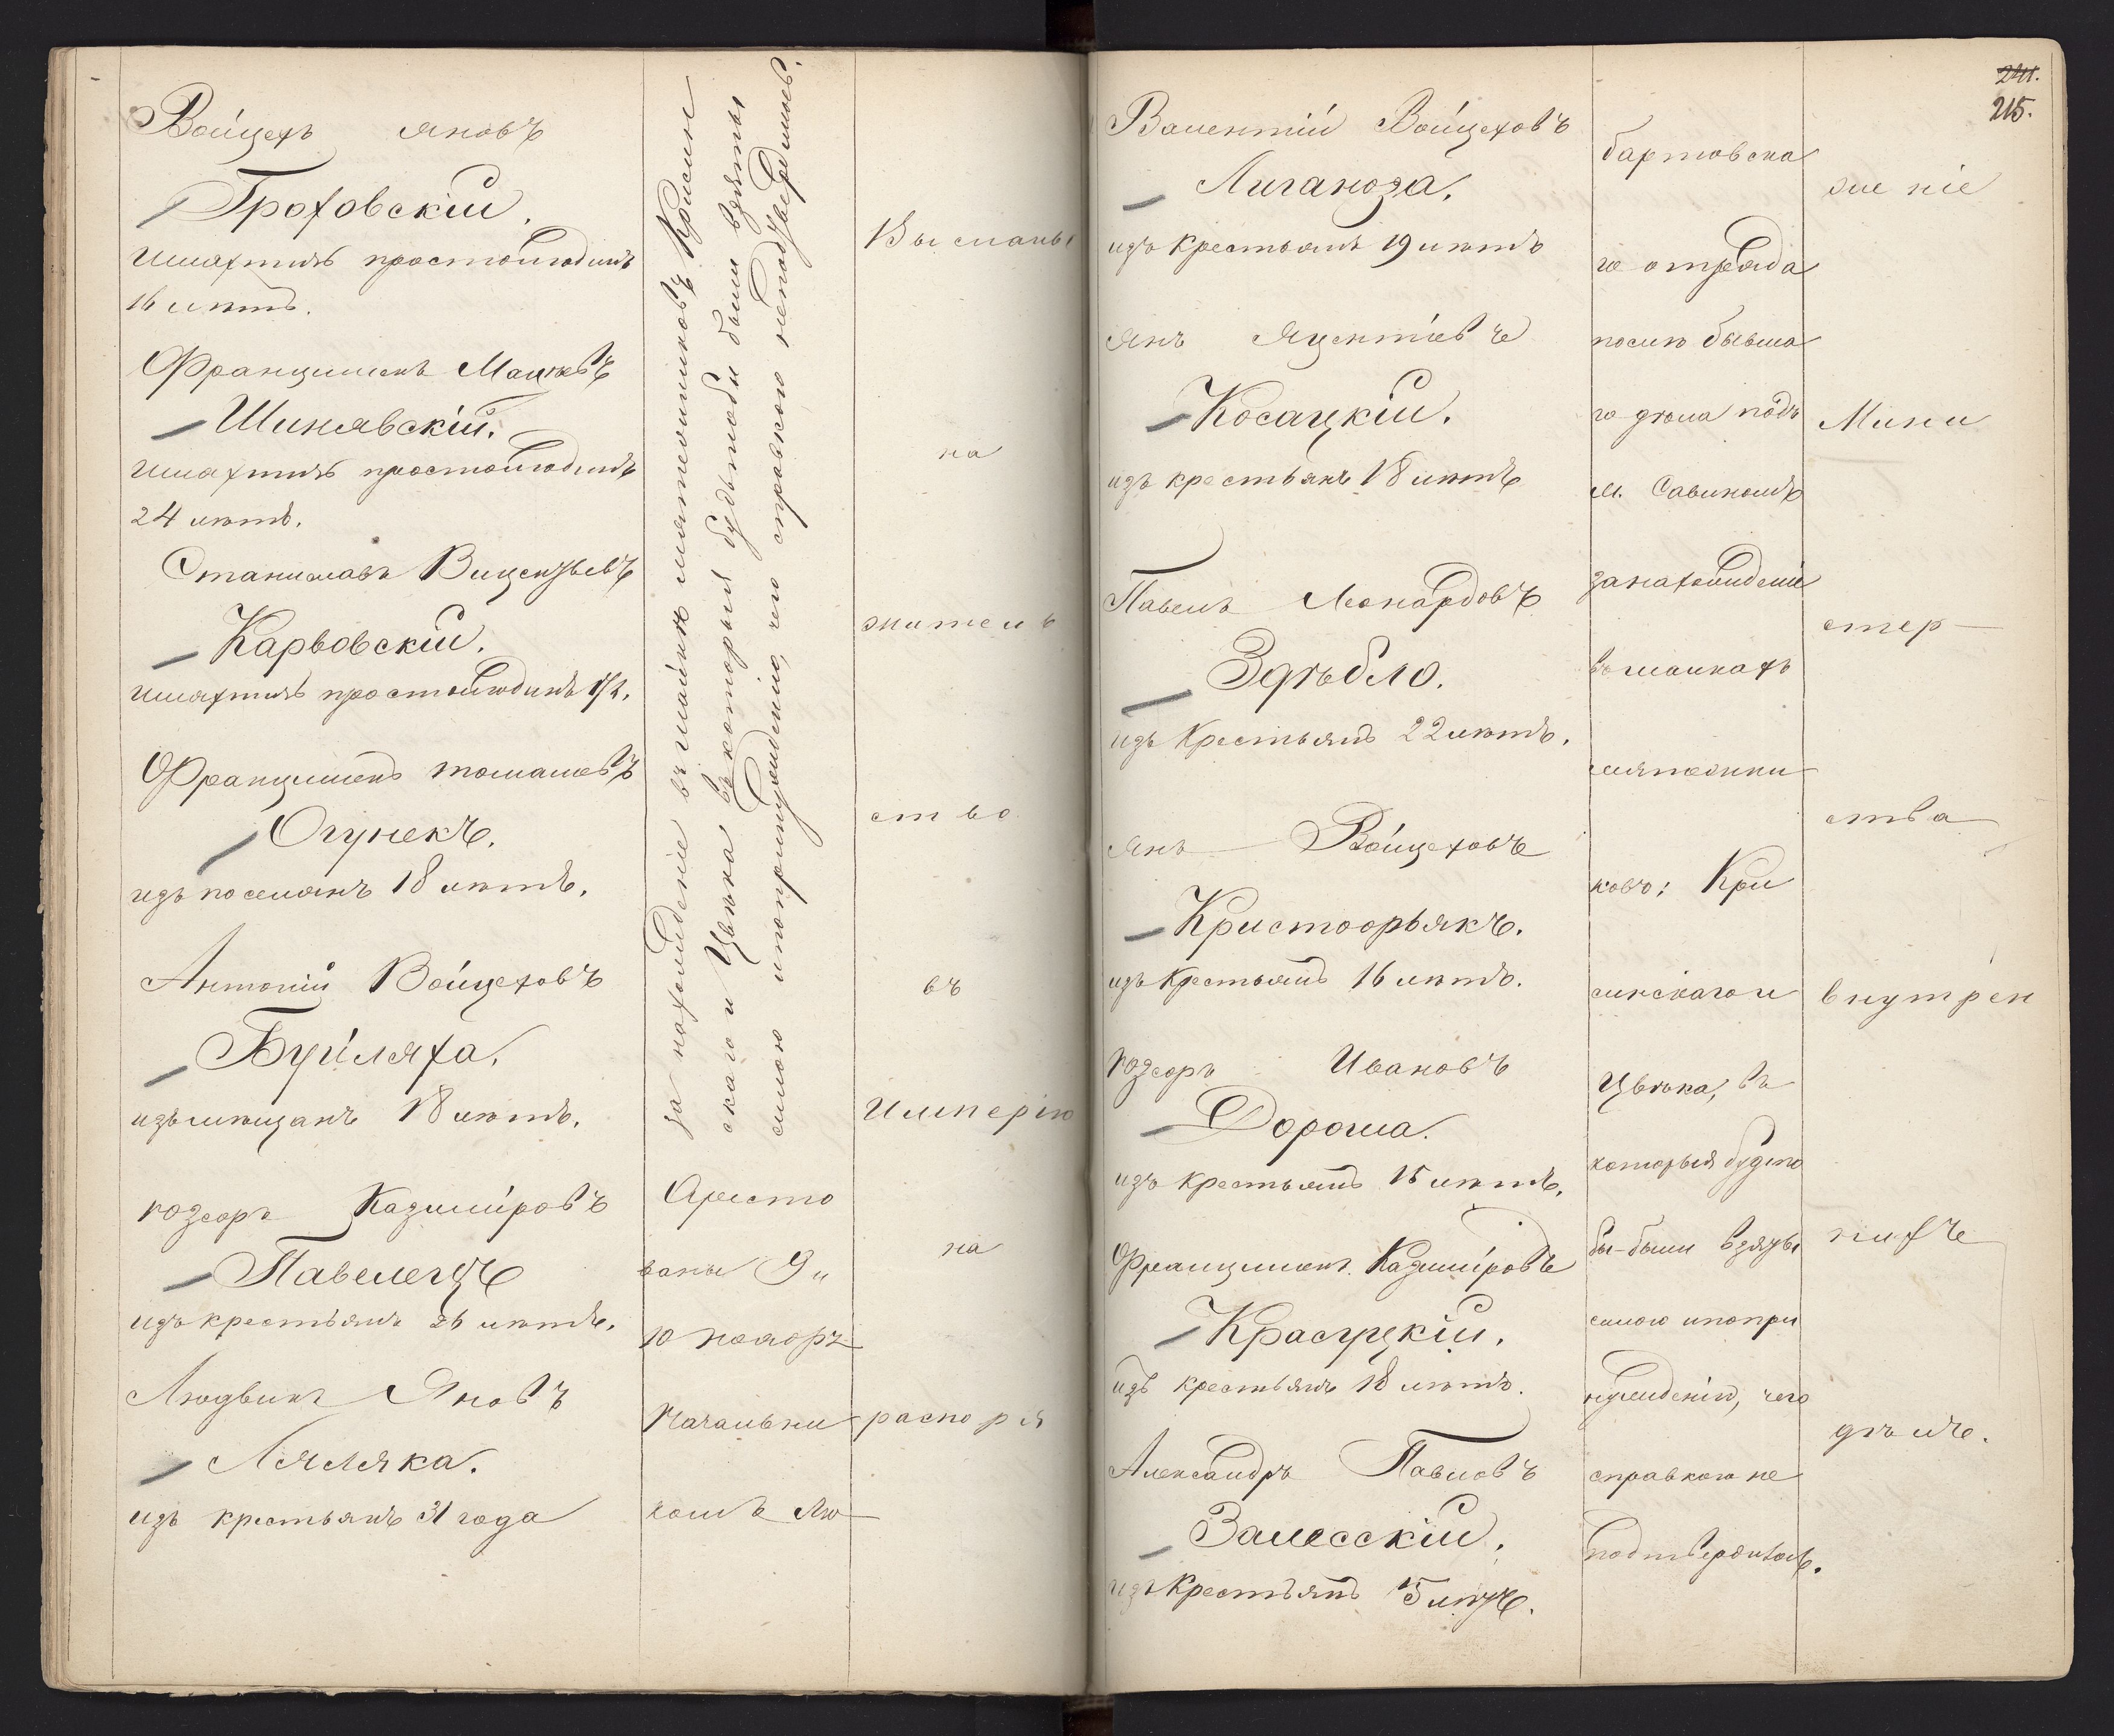 Войцехъ Яновъ
Гроховскій.
шляхтичъ простолюдинъ
16 лѣтъ.
Францишекъ Мацѣевъ
Шинявскій.
шляхтичъ простолюдинъ
24 лѣтъ.
Станиславъ Виценцьевъ
Карвовскій.
шляхтичъ простолюдинъ
Францишекъ Томашевъ
Огунекъ.
изъ поселянъ 18 лѣтъ.
Антоній Войцеховъ
Буйляха.
изъ мѣщанъ 18 лѣтъ.
Іозефъ Казиміровъ
Павелецъ
изъ крестьянъ 26 лѣтъ.
Людвикъ Яновъ
Ляляка.
изъ крестьянъ 31 года
за нахожденіе въ шайкѣ мятежниковъ Крысин
скаго и Цвѣка въ которыя будьтобы были взяты
силою и по принужденію, чего справкою неподтвердилось.
Аресто
ваны 9 и
10 ноября
Начальни
комъ Лю
Высланы
на
житель
ство
въ
Имперію
на
распоря
241.
215.
Валентій Войцеховъ
Лиганоза.
изъ крестьянъ 19 лѣтъ
Янъ Яцентіевъ
Косацкій.
изъ крестьянъ 18 лѣтъ
Павелъ Леонардовъ
Здѣбло.
изъ крестьянъ 22 лѣтъ.
Янъ Войцеховъ
Кристофьякъ.
изъ крестьянъ 16 лѣтъ.
Іозефъ Ивановъ
Дороша.
изъ крестьянъ 15 лѣтъ.
Францишекъ Казиміровъ
Красуцкій.
изъ крестьянъ 18 лѣтъ.
Александръ Павловъ
Залесскій.
изъ крестьянъ 15 лѣтъ.
бартовска
го отряда
послѣ бывша
го дѣла подъ
м. Савиномъ
за нахожденіе
въ шайкахъ
мятежни
ковъ: Кры
синскаго и
Цвѣка, въ
которыя будто
бы были взяты
силою и по при
нужденію, чего
справкою не
подтвердилось.
же ніе
Мини
стер
ства
внутрен
нихъ
дѣлъ.